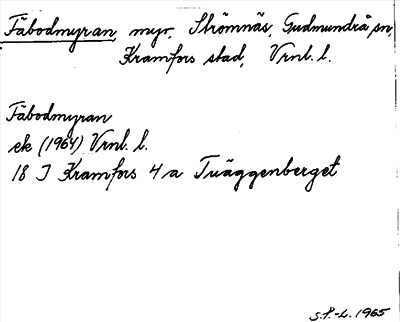 Fäbodmyran, myr, Strömnäs, Gudmundrå sn,
Kramfors stad, Vrnl. l.
Fäbodmyran
ek (1964) Vrnl. l.
18 J Kramfors 4 a Tväggenberget
S.P.-L. 1965